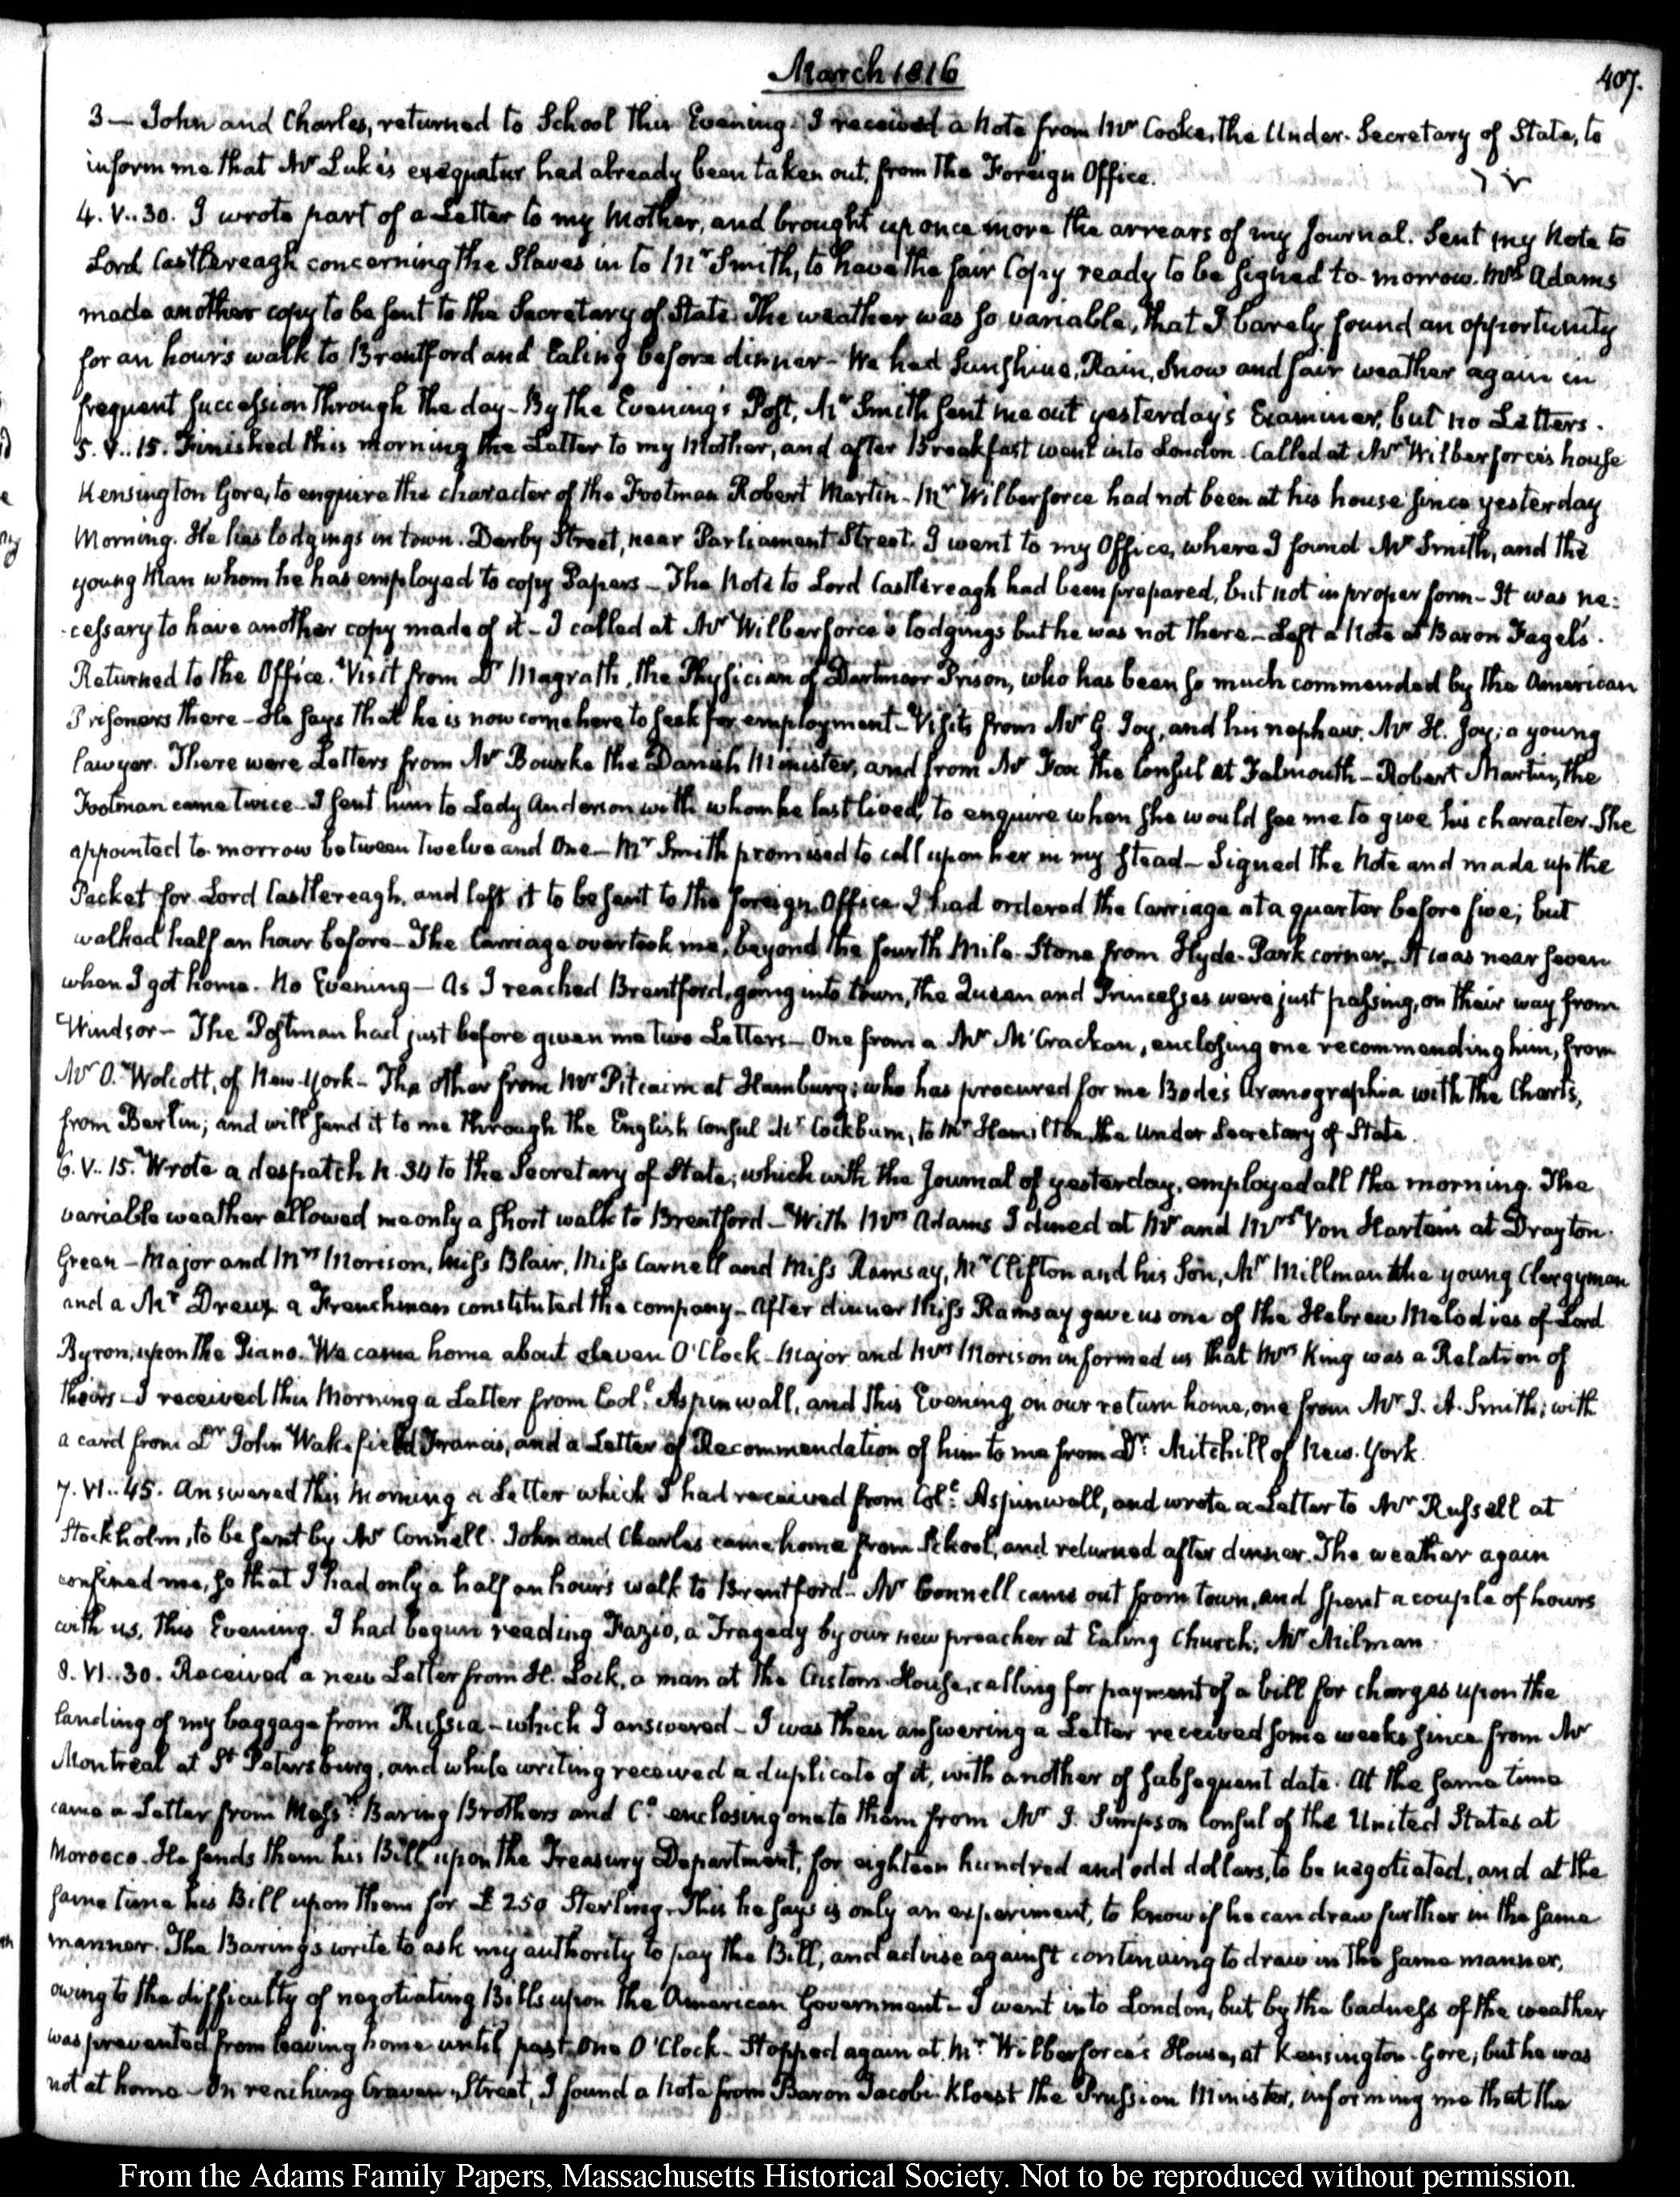 March 1816
407.
3 — John and Charles, returned to School this Evening. I received a Note from Mr Cooke, the Under-Secretary of State, to
inform me that Mr Luke's exequatur had already been taken out, from the Foreign Office.
4. V..30. I wrote part of a Letter to my Mother, and brought up once more the arrears of my Journal. Sent my Note to
Lord Castlereagh concerning the Slaves in to Mr Smith, to have the fair Copy ready to be signed to-morrow. Mrs Adams
made another copy to be sent to the Secretary of State. The weather was so variable, that I barely found an opportunity
for an hour's walk to Brentford and Ealing before dinner - We had Sunshine, Rain, Snow and fair weather again in
frequent succession through the day - By the Evening's Post, Mr Smith sent me out yesterday's Examiner, but no Letters.
5. V..15. Finished this morning the Letter to my Mother, and after Breakfast went into London. Called at Mr Wilberforce's house
Kensington Gore, to enquire the character of the Footman Robert Martin - Mr Wilberforce had not been at his house since yesterday
Morning. He has lodgings in town. Derby Street, near Parliament Street. I went to my Office, where I found Mr Smith, and the
young Man whom he has employed to copy Papers - The Note to Lord Castlereagh had been prepared, but not in proper form - It was ne:
:cessary to have another copy made of it - I called at Mr Wilberforce's lodgings but he was not there - Left a Note at Baron Fagel's.
Returned to the Office. Visit from Dr Magrath, the Physician of Dartmoor Prison, who has been so much commended by the American
Prisoners there - He says that he is now come here to seek for employment - Visits from Mr G. Joy, and his nephew, Mr H. Joy; a young
lawyer. There were Letters from Mr Bourke the Danish Minister, and from Mr Fox the Consul at Falmouth - Robert Martin, the
Footman came twice - I sent him to Lady Anderson with whom he last lived, to enquire when she would see me to give his character. She
appointed to-morrow between twelve and One - Mr Smith promised to call upon her in my stead - Signed the Note and made up the
Packet for Lord Castlereagh, and left it to be sent to the foreign Office. I had ordered the Carriage at a quarter before five; but
walked half an hour before - The Carriage overtook me, beyond the fourth Mile-Stone from Hyde-Park corner - It was near seven
when I got home. No Evening - As I reached Brentford, going into town, the Queen and Princesses were just passing, on their way from
Windsor - The Postman had just before given me two Letters - One from a Mr M'Cracken, enclosing one recommending him, from
Mr O. Wolcott, of New-York - The other from Mr Pitcairn at Hamburg; who has procured for me Bode's Uranographia with the Charts,
from Berlin; and will send it to me through the English Consul Mr Cockburn, to Mr Hamilton, the Under Secretary of State.
6. V..15. Wrote a despatch N. 34 to the Secretary of State; which with the Journal of yesterday, employed all the morning. The
variable weather allowed me only a short walk to Brentford - With Mrs Adams I dined at Mr and Mrs Von Harten's at Drayton-
Green - Major and Mrs Morison, Miss Blair, Miss Carnell and Miss Ramsay, Mr Clifton and his Son, Mr Millman the young Clergyman
and a Mr Dreux a Frenchman constituted the company - After dinner Miss Ramsay gave us one of the Hebrew Melodies of Lord
Byron, upon the Piano. We came home about eleven O'Clock - Major and Mrs Morison informed us that Mrs King was a Relation of
theirs - I received this Morning a Letter from Coll Aspinwall, and this Evening on our return home, one from Mr J. A. Smith; with
a card from Dr John Wakefield Francis, and a Letter of Recommendation of him to me from Dr Mitchill of New-York.
7. VI..45. Answered this Morning a Letter which I had received from Coll Aspinwall, and wrote a Letter to Mr Russell at
Stockholm, to be sent by Mr Connell. John and Charles came home from School, and returned after dinner. The weather again
confined me, so that I had only a half an hour's walk to Brentford - Mr Connell came out from town, and spent a couple of hours
with us, this Evening. I had begun reading Fazio, a Tragedy by our new preacher at Ealing Church, Mr Milman.
8. VI..30. Received a new Letter from H. Lock, a man at the Custom-House, calling for payment of a bill for charges upon the
landing of my baggage from Russia - which I answered - I was then answering a Letter received some weeks since from Mr
Montreal at St Petersburg, and while writing received a duplicate of it, with another of subsequent date. At the same time
came a Letter from Messrs Baring Brothers and Co enclosing one to them from Mr J. Simpson Consul of the United States at
Morocco. He sends them his Bill upon the Treasury Department, for eighteen hundred and odd dollars, to be negotiated, and at the
same time his Bill upon them for £250 Sterling. This he says is only an experiment, to know if he can draw further in the same
manner. The Barings write to ask my authority to pay the Bill, and advise against continuing to draw in the same manner,
owing to the difficulty of negotiating Bills upon the American Government - I went into London, but by the badness of the weather
was prevented from leaving home until past One O'Clock - Stopped again at Mr Wilberforce's House, at Kensington-Gore; but he was
not at home - On reaching Craven Street, I found a Note from Baron Jacobi-Kloest the Prussian Minister, informing me that the
From the Adams Family Papers, Massachusetts Historical Society. Not to be reproduced without permission.